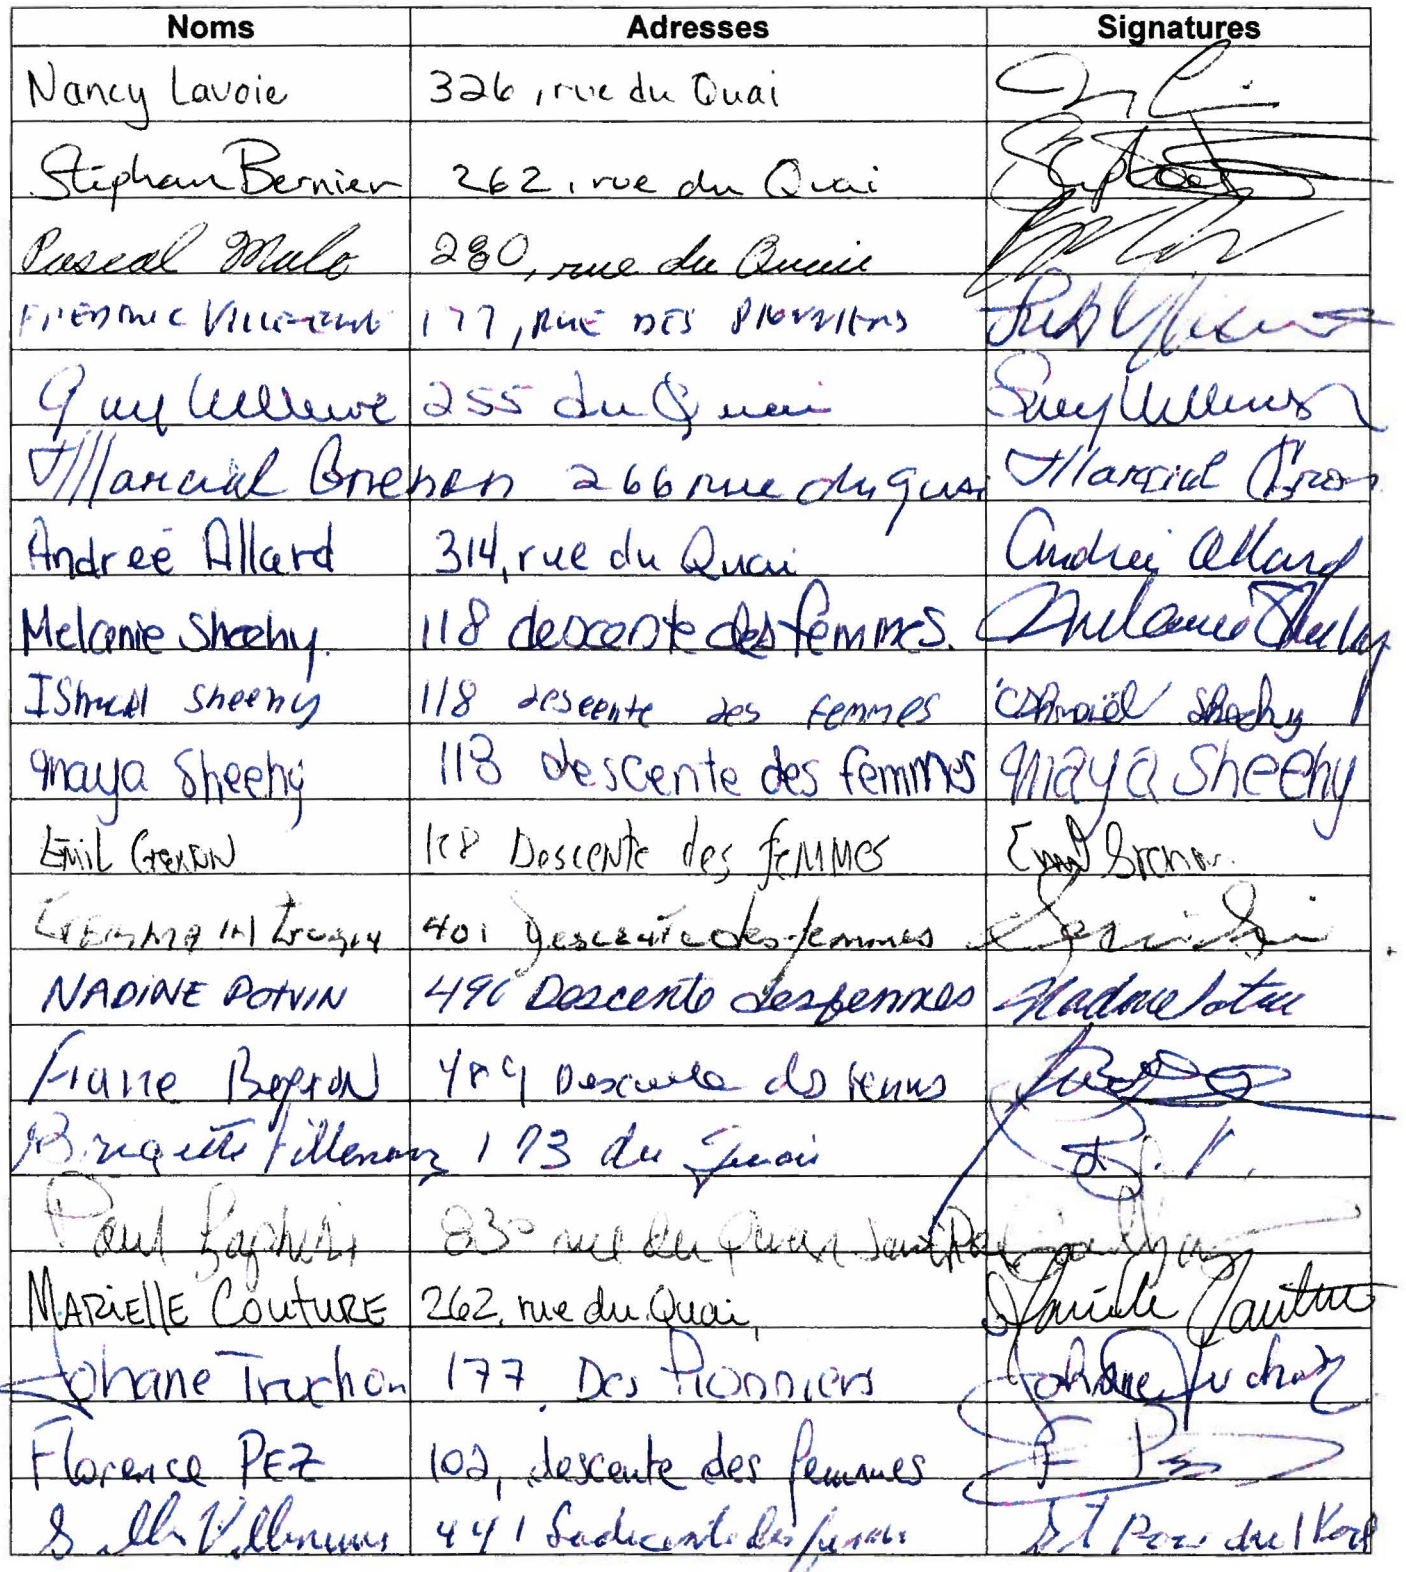 Noms Adresses Signatures
Nancy Lavoie 326, rue du Quai
Stéphan Bernier 262, rue du Quai
Pascal Malo 280, rue du Quai
FREDERIC VILLENEUVE 177, RUE DES PIONNIERS
Guy Villeneuve 255 du Quai Guy Villeneuve
Marcial Grenon 266 rue du quai Marcial
Andreé Allard 314, rue du Quai Andrée Allard
Melanie Sheehy. 118 descente des femmes. Melanie Sheehy
Ishmael Sheehy 118 descente des femmes Ishmaël Sheehy
Maya Sheehy 118 descente des femmes Maya Sheehy
EMIL GRENON Descente des femmes Emil Grenon
401 Descente des femmes
NADINE POTVIN Descente des femmes Nadine Potvin
France 489 Descente des femmes
Brigitte Villeneuve 173 du Quai B.V.
Paul rue du Quai
MARIELLE COUTURE 262, rue du Quai, Marielle Couture
Johane Truchon 177 Des Pionniers Johane Truchon
Florence PEZ 102, descente des femmes F Pez
Villeneuve 441